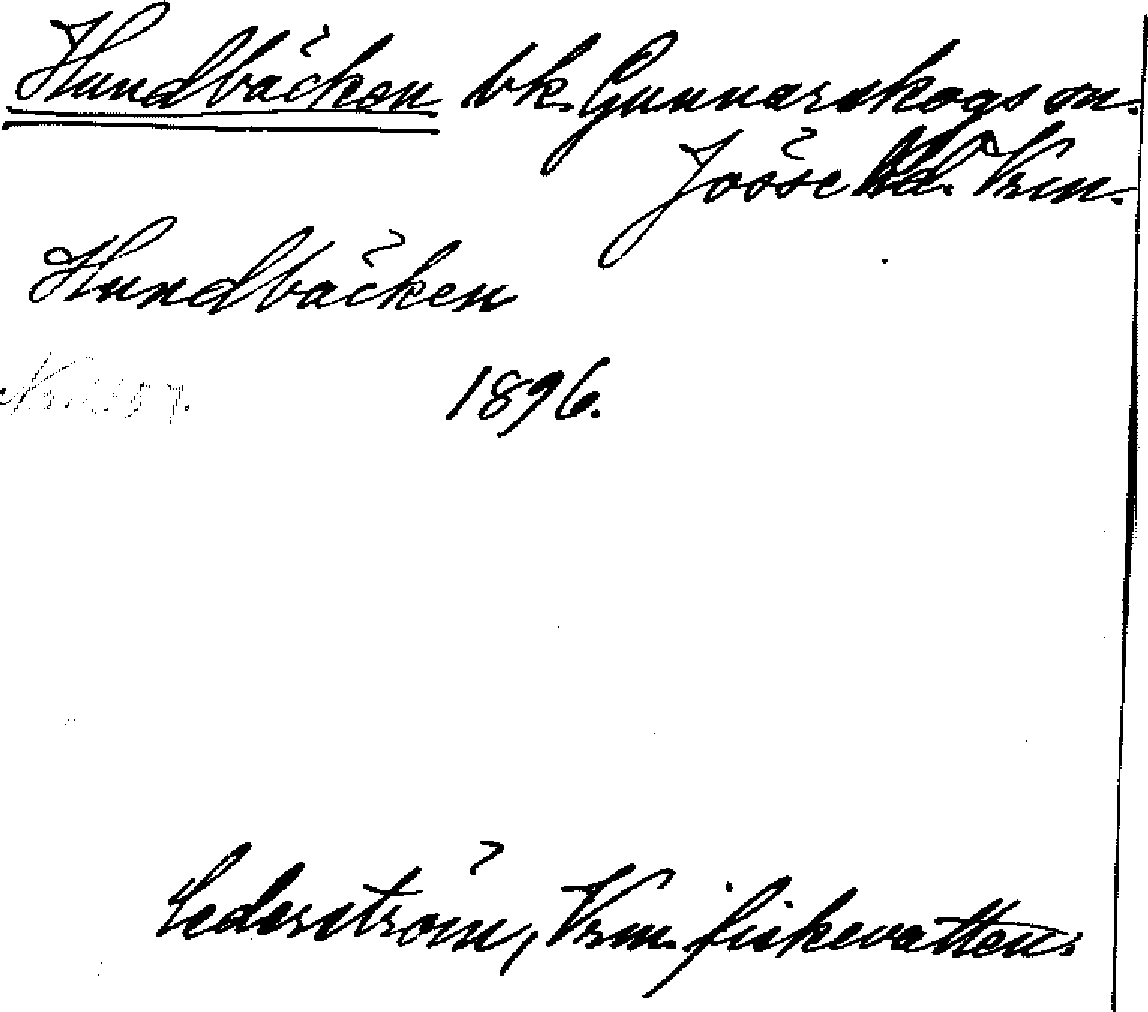 Hundbäcken bk. Gunnarskogs sn.
Jösse hd. Vrm.
Hundbäcken
1896.
Cederström, Vrm. fiskevatten.